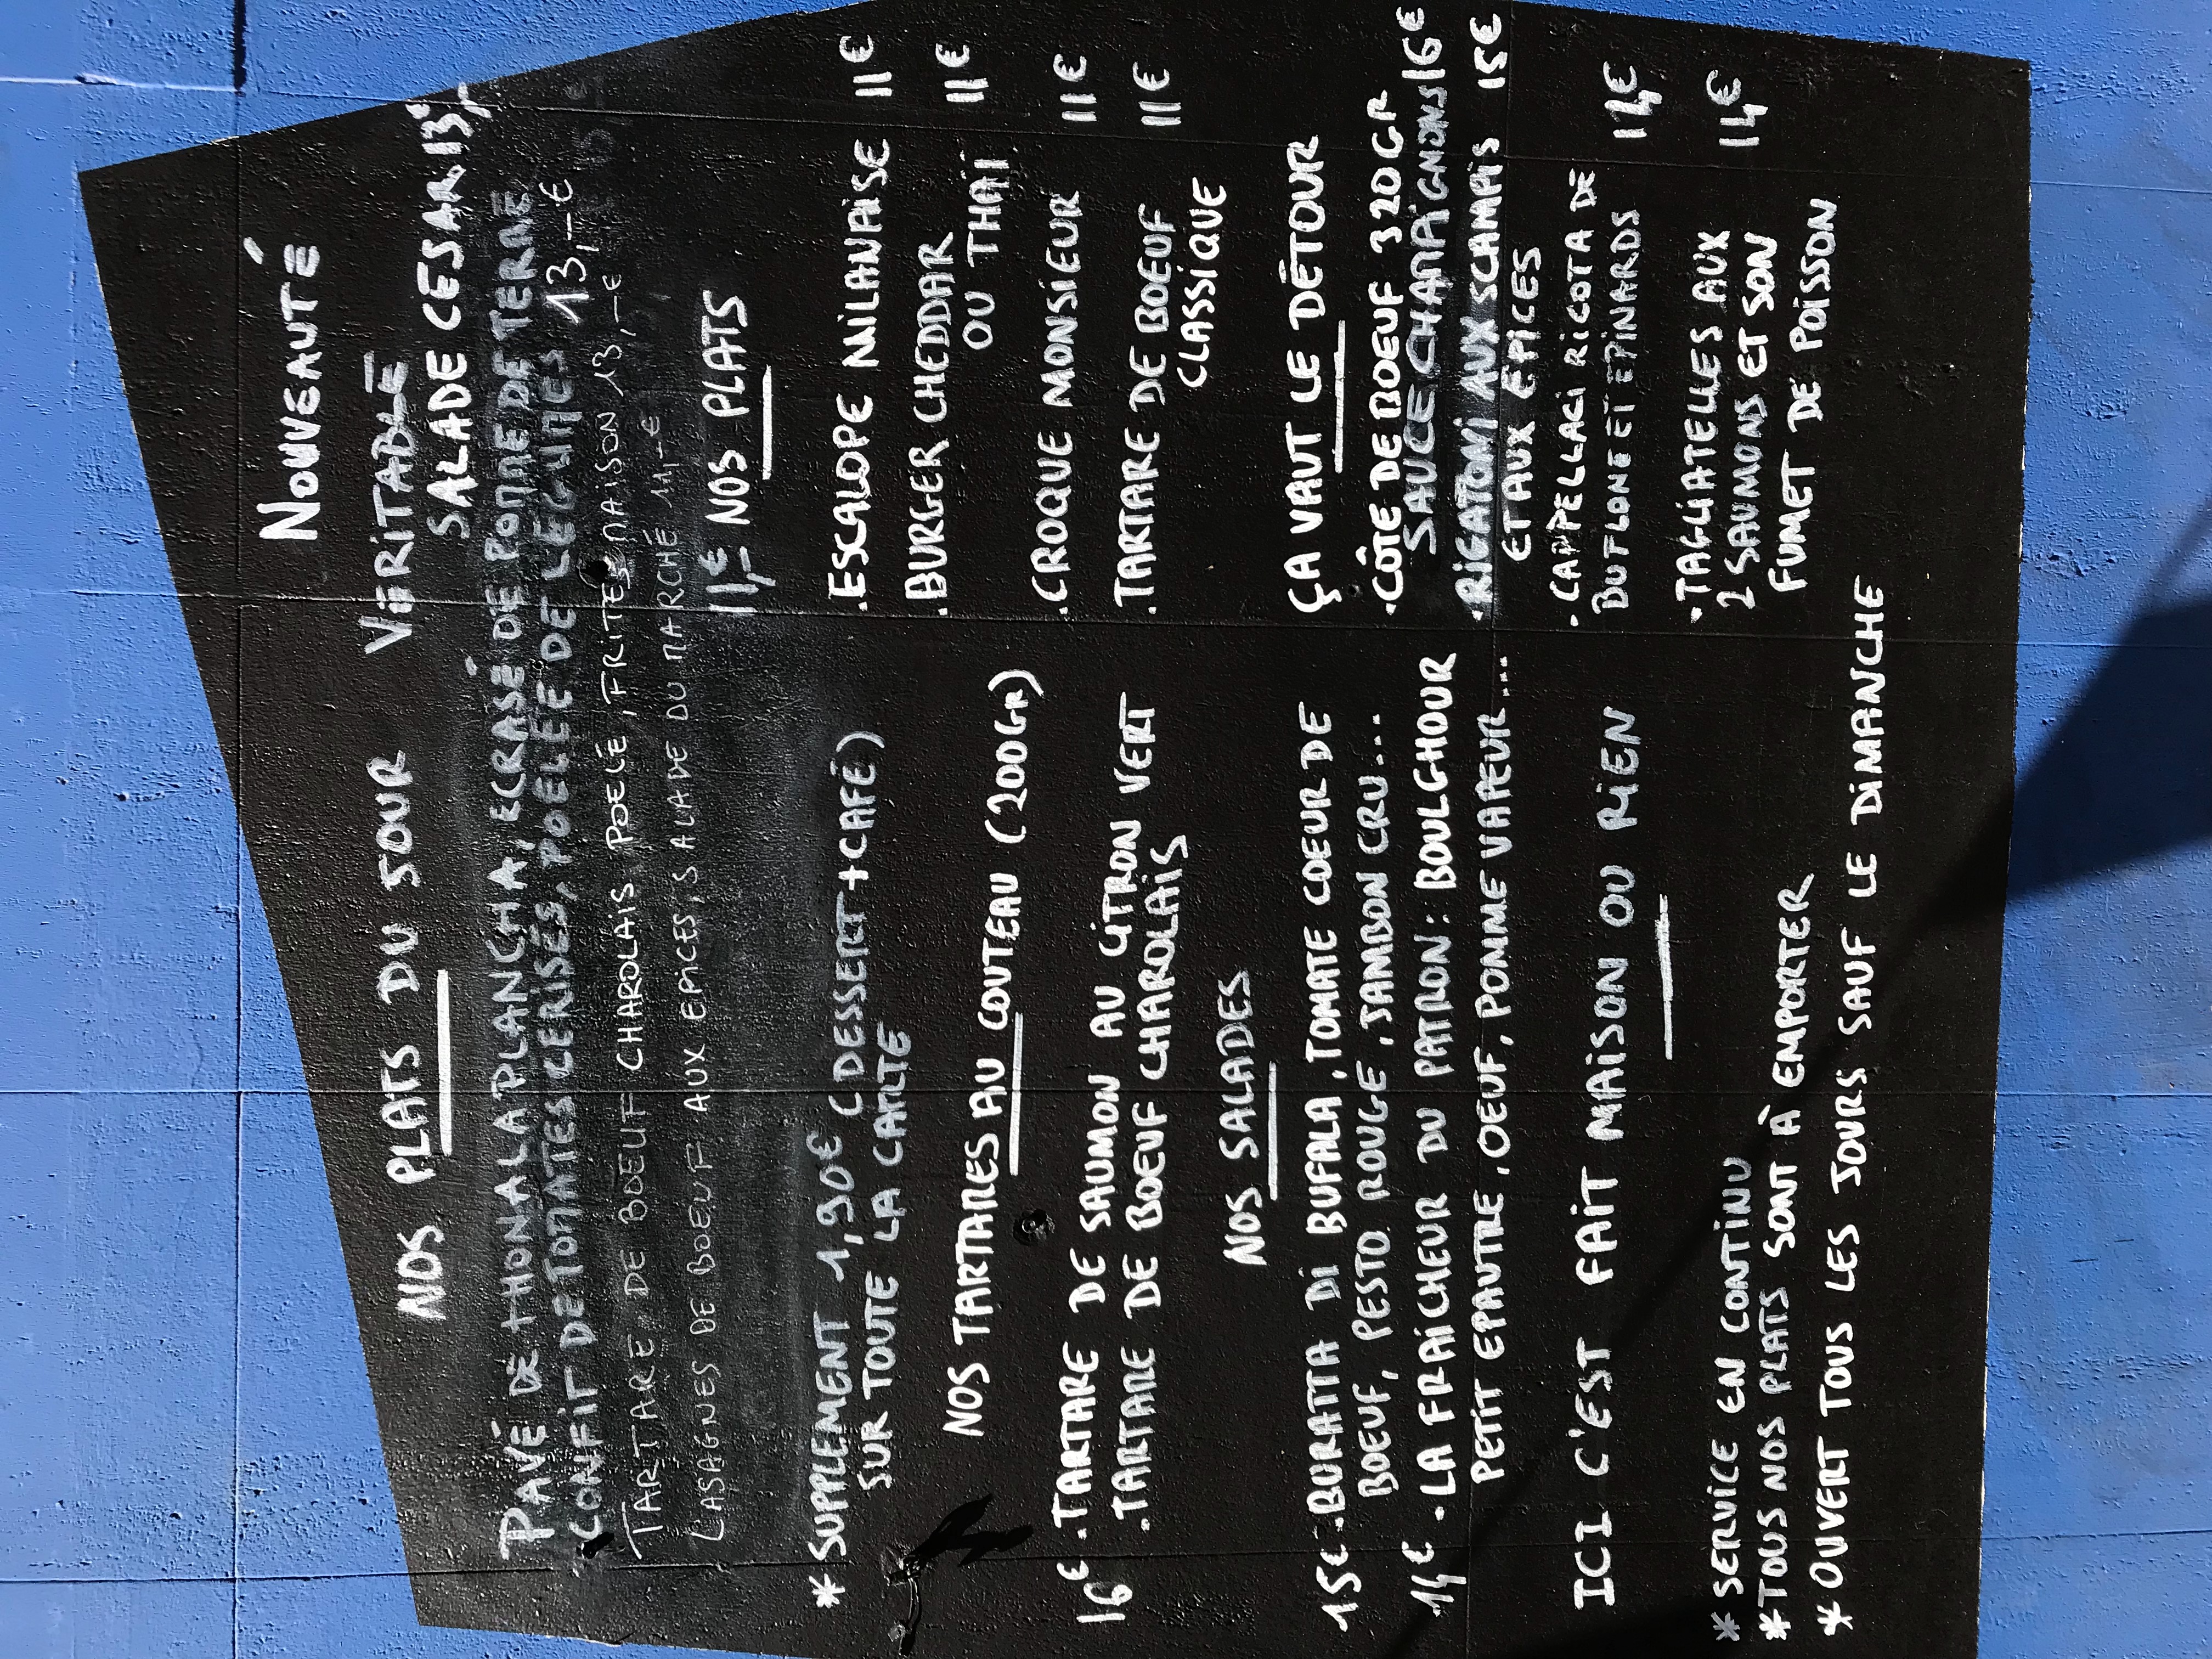 NOUVEAUTÉ
VÉRITABLE
SALADE CESAR 13,-€
NOS PLATS DU JOUR
PAVÉ DE THON A LA PLANCHA, ECRASÉ DE POMME DE TERRE
CONFIT DE TOMATES CERISES, POELÉE DE LEGUMES 13,-€
TARTARE DE BOEUF CHAROLAIS POELÉ, FRITES MAISON 13,-€
LASAGNES DE BOEUF AUX EPICES, SALADE DU MARCHÉ 11,-€
* SUPPLEMENT 1,90€ (DESSERT+CAFÉ)
SUR TOUTE LA CARTE
NOS TARTARES AU COUTEAU (200GR)
16€ .TARTARE DE SAUMON AU CITRON VERT
.TARTARE DE BOEUF CHAROLAIS
NOS SALADES
15€ .BURATTA DI BUFALA, TOMATE COEUR DE
BOEUF, PESTO ROUGE, JAMBON CRU...
14€ .LA FRAICHEUR DU PATRON: BOULGHOUR
PETIT EPAUTRE, OEUF, POMME VAPEUR...
ICI C'EST FAIT MAISON OU RIEN
* SERVICE EN CONTINU
* TOUS NOS PLATS SONT À EMPORTER
* OUVERT TOUS LES JOURS SAUF LE DIMANCHE
11,-€ NOS PLATS
.ESCALOPE MILANAISE 11€
.BURGER CHEDDAR 11€
OU THAÏ
.CROQUE MONSIEUR 11€
.TARTARE DE BOEUF 11€
CLASSIQUE
ÇA VAUT LE DÉTOUR
.CÔTE DE BOEUF 320GR
SAUCE CHAMPIGNONS 16€
.RIGATONI AUX SCAMPIS 15€
ET AUX EPICES
.CAPPELLACI RICOTA DE
BUFLONE ET EPINARDS 14€
.TAGLIATELLES AUX
2 SAUMONS ET SON 14€
FUMET DE POISSON